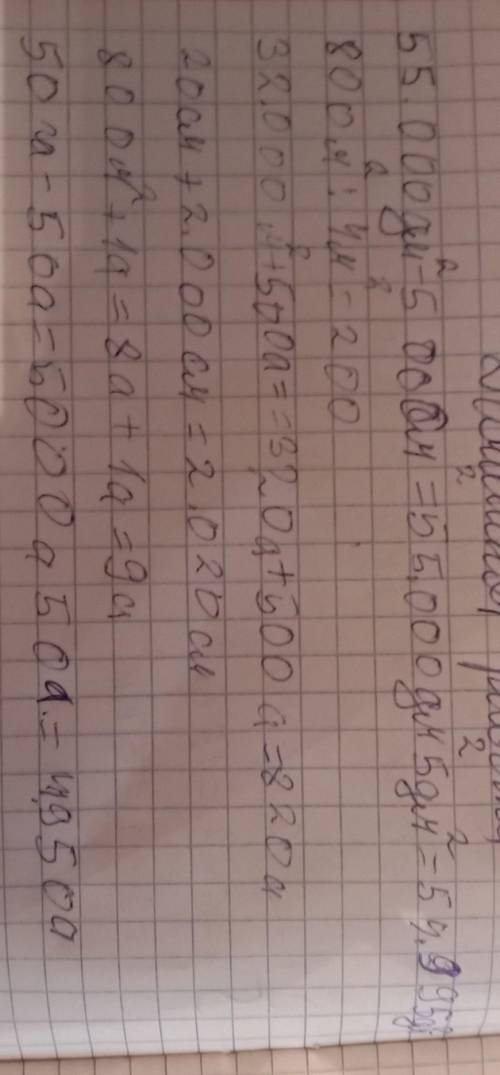 55.000дм²-5000см²=55.000дм²5дм²=54.995дм
800м²:4м²=200
32.000м²+500а==320а+500а=820а
20см+2.000см=2.020см
800м²+1а=8а+1а=9а
50га-50а=5000а50а.=4,950а